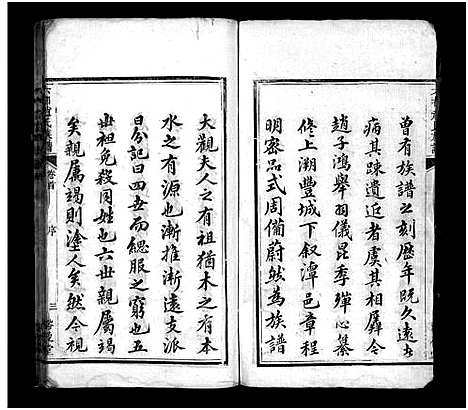 曾有族譜之刻歷年既久遠者
病其疎遺近者虞其相羼今
趙子鴻舉羽儀昆季殫心纂
修上溯豐城下叙潭邑章程
明密品式周備蔚然為族譜
大觀夫人之有祖猶木之有本
水之有源也漸推漸遠支派
日分記曰四世而緦服之窮也五
世袒免殺同姓也六世親屬竭
矣親屬竭則塗人矣然今視
卷首
序
三